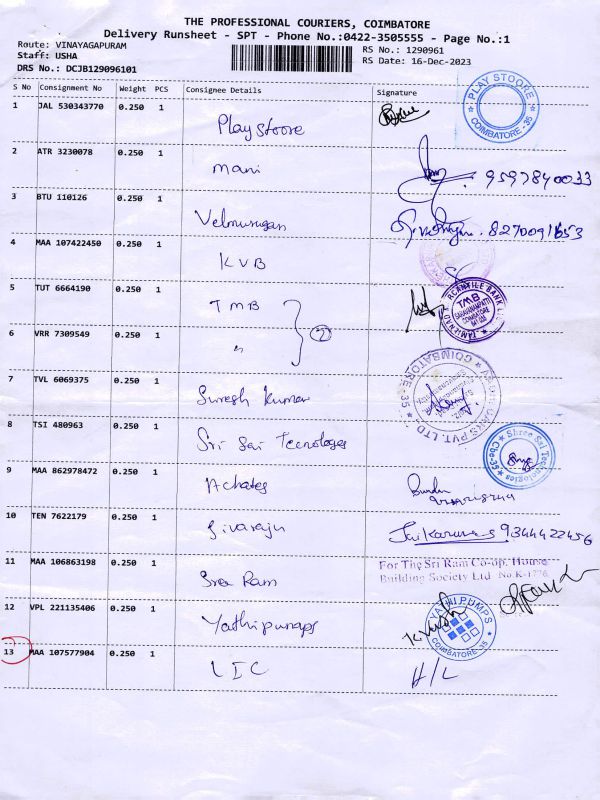 THE PROFESSIONAL COURIERS, COIMBATORE
Delivery Runsheet - SPT - Phone No.:0422-3505555 - Page No.:1
Route: VINAYAGAPURAM
Staff: USHA
DRS No.: DCJB129096101
RS No.: 1290961
RS Date: 16-Dec-2023
S No Consignment No Weight PCS Consignee Details Signature
1 JAL 530343770 0.250 1 Play stoore
PLAY STOORE
COIMBATORE - 35
2 ATR 3230078 0.250 1 mani 9597840033
3 BTU 110126 0.250 1 Velmurugan 8270091653
4 MAA 107422450 0.250 1 KVB
5 TUT 6664190 0.250 1 TMB
TMB
COIMBATORE
6 VRR 7309549 0.250 1 " 2
7 TVL 6069375 0.250 1 Suresh Kumar
PVT. LTD. COIMBATORE-35
8 TSI 480963 0.250 1 Sri Sai Tecnologes
Shree Sai Technologies
Cbe-35
9 MAA 862978472 0.250 1 Achates
10 TEN 7622179 0.250 1 Sivaraju 9344422456
11 MAA 106863198 0.250 1 Sree Ram
For The Sri Ram Co-op. House
Building Society Ltd No.K-1776
12 VPL 221135406 0.250 1 Yathi pumps
YATHI PUMPS
COIMBATORE - 35
13 MAA 107577904 0.250 1 LIC H/L